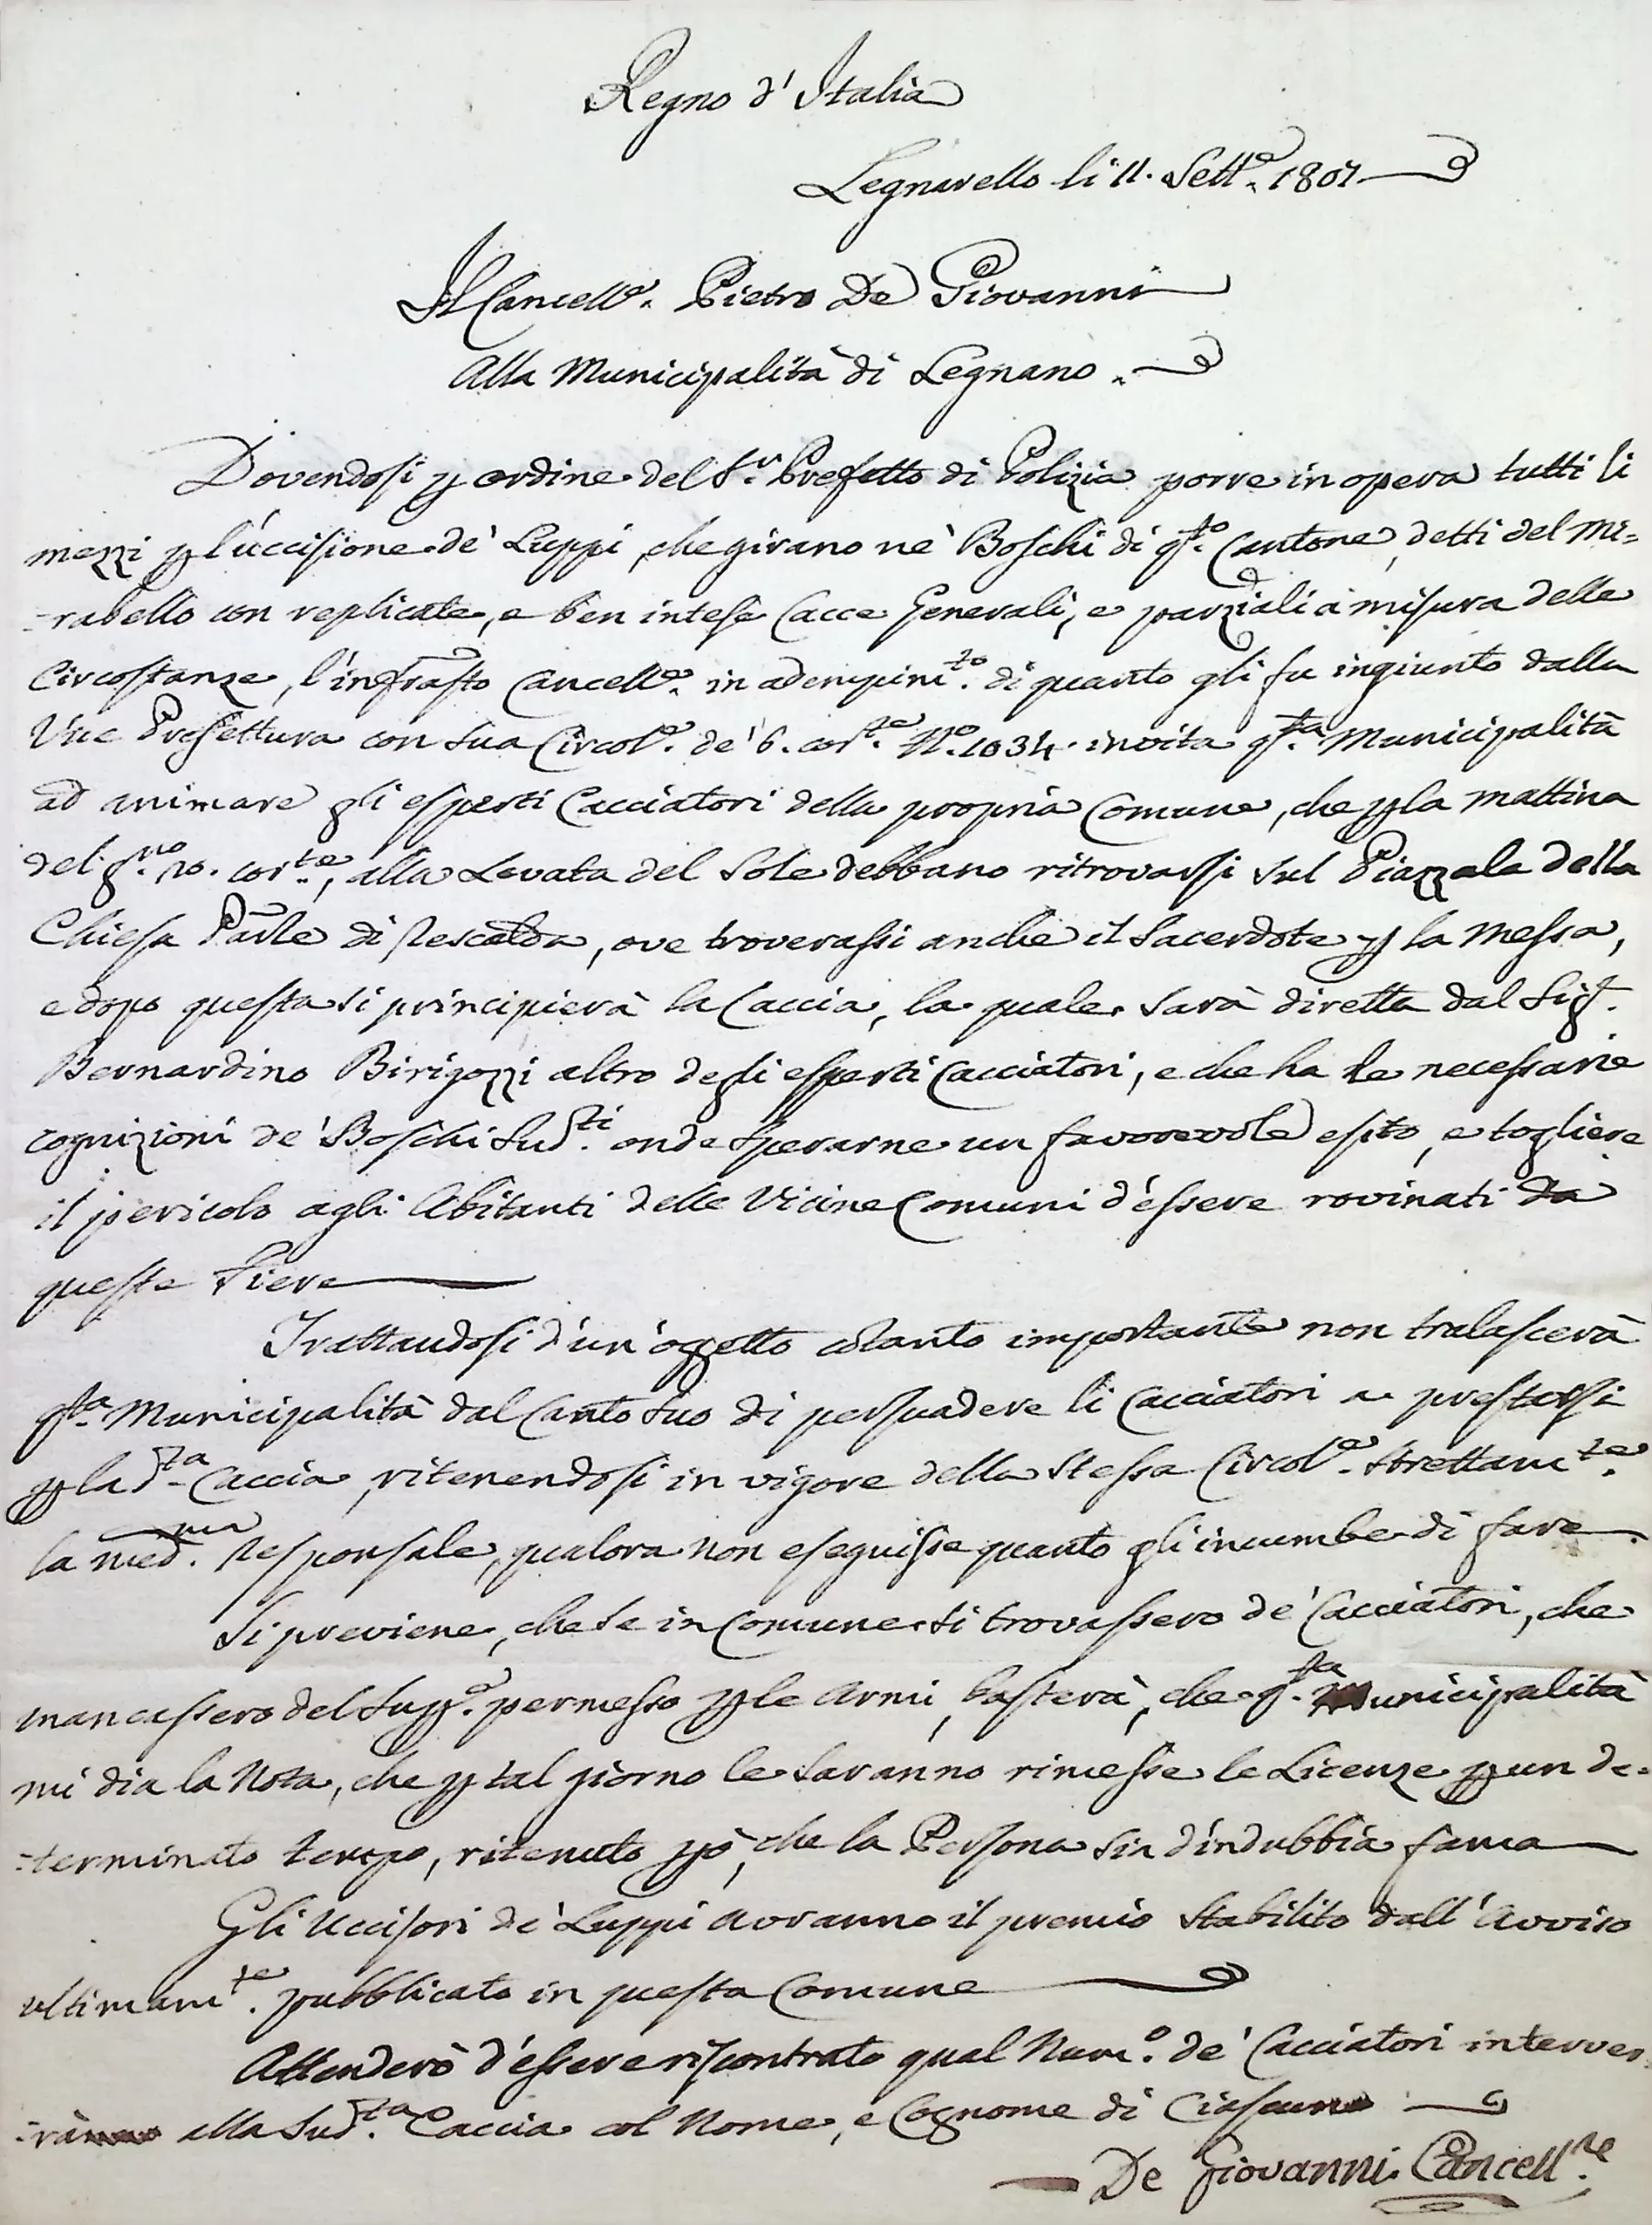 Regno d'Italia
Legnarello li 11. Sett.e 1807
Il Cancell.e Pietro De Giovanni
Alla Municipalità di Legnano.
Dovendosi p ordine del S.r Prefetto di Polizia porre in opera tutti li
mezzi p l'uccisione de' Luppi, che girano ne' Boschi di q.to Cantone, detti del Mi=
=rabello con replicate, e ben intese Cacce Generali, e parziali a misura delle
Circostanze, l'infrasto Cancell.e in adempim.to di quanto gli fu ingiunto dalla
Vice Prefettura con sua Circol.e de' 6. cor.te N.o 1034. invita q.ta Municipalità
ad animare gli esperti Cacciatori della propria Comune, che p la mattina
del g.no 20. cor.te, alla Levata del Sole debbano ritrovarsi sul Piazzale della
Chiesa Parle di Rescalda, ove troverassi anche il Sacerdote p la Messa,
e dopo questa si principierà la Caccia, la quale sarà diretta dal Sig.r
Bernardino Birigozzi altro degli esperti Cacciatori, e che ha le necessarie
cognizioni de' Boschi Sud.ti onde sperarne un favorevole esito, e togliere
il pericolo agli Abitanti delle Vicine Comuni d'essere rovinati da
queste Fiere
Trattandosi d'un'oggetto cotanto importante non tralascerà
q.ta Municipalità dal Canto suo di persuadere li Cacciatori a prestarsi
p la d.ta Caccia, ritenendosi in vigore della stessa Circol.e strettam.te
la med.ma Responsale, qualora non eseguisse quanto gli incumbe di fare.
Si previene, che se in Comune si trovassero de' Cacciatori, che
mancassero del Sup.o permesso p le Armi, basterà, che q.ta Municipalità
mi dia la Nota, che p tal giorno le saranno rimesse le Licenze p un de=
=terminato tempo, ritenuto pò, che la Persona sia d'indubbia fama
Gli Uccisori de' Luppi avranno il premio stabilito dall'Avviso
ultimam.te pubblicato in questa Comune
Attenderò d'essere riscontrato qual Num.o de' Cacciatori interver=
=rà alla Sud.ta Caccia col Nome, e Cognome di Ciascuno
De Giovanni Cancell.re